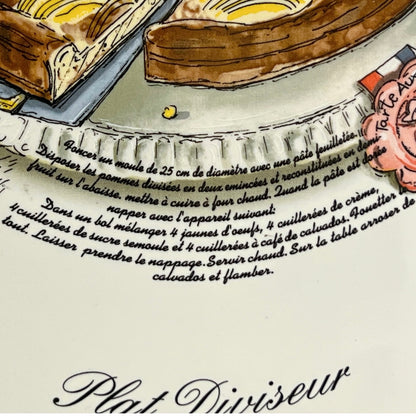 Foncer un moule de 25 cm de diamètre avec une pâte feuilletée.
Disposer les pommes divisées en deux emincées et reconstituées en demi
fruit sur l'abaisse. mettre à cuire à four chaud. Quand la pâte est dorée
napper avec l'appareil suivant:
Dans un bol mélanger 4 jaunes d'oeufs, 4 cuillerées de crème,
4 cuillerées de sucre semoule et 4 cuillerées à café de calvados. Fouetter le
tout. Laisser prendre le nappage. Servir chaud. Sur la table arroser de
calvados et flamber.
Tarte
Plat Diviseur